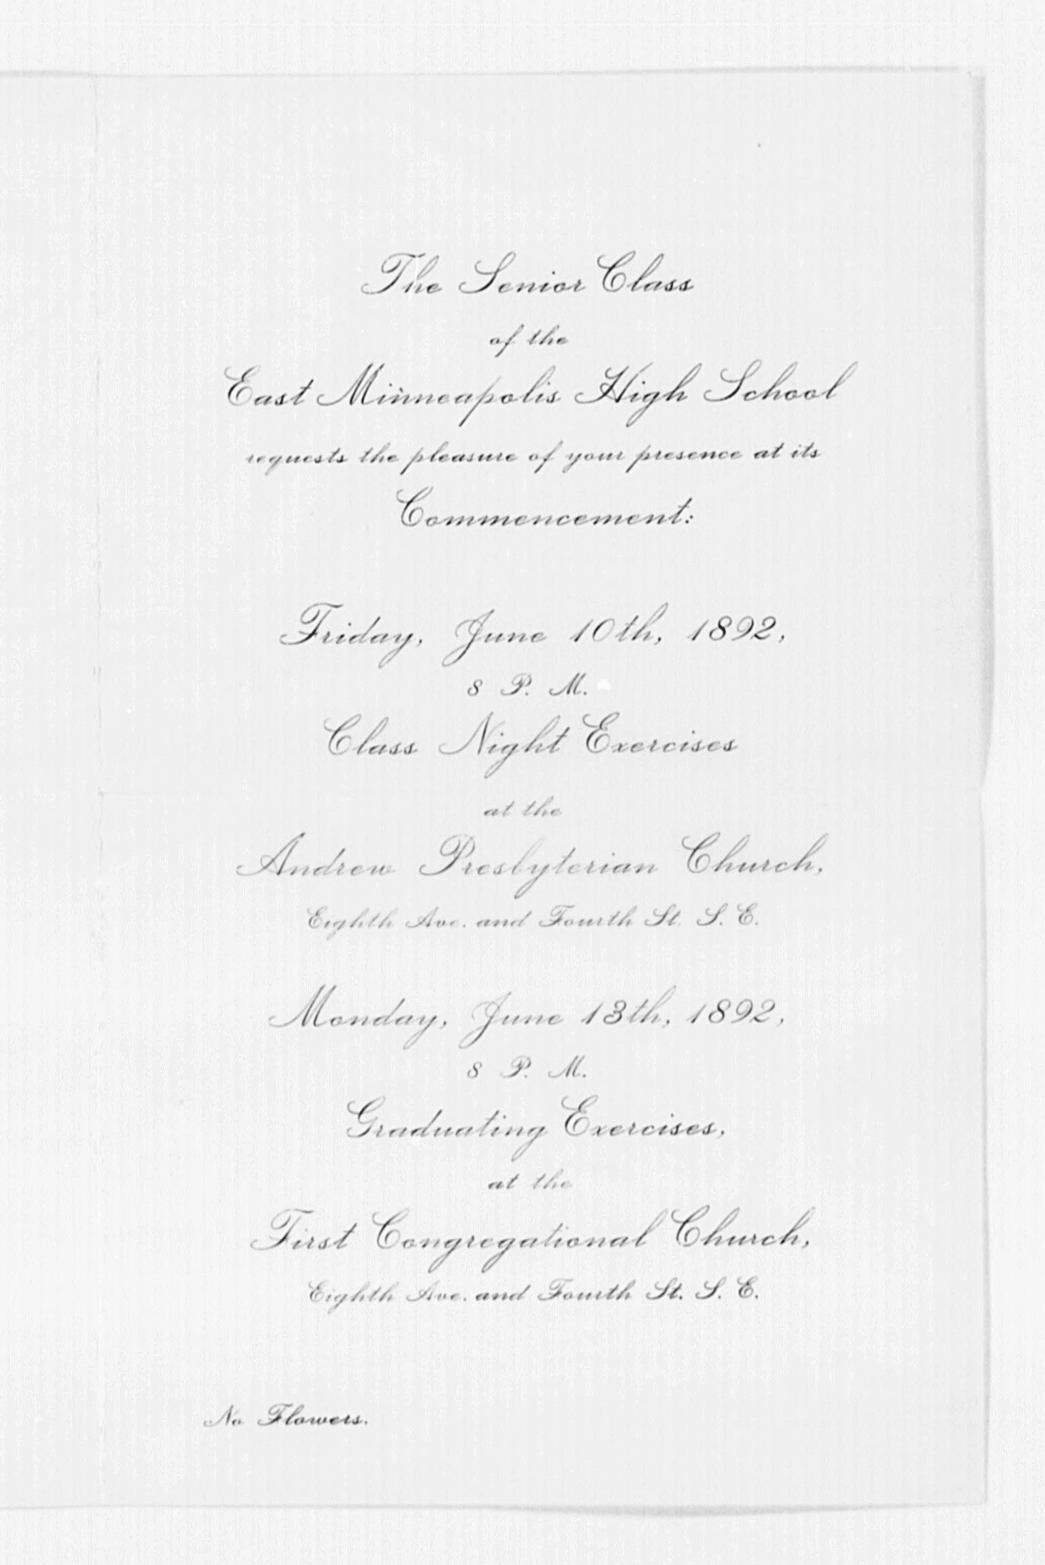 The Senior Class
of the
East Minneapolis High School
requests the pleasure of your presence at its
Commencement:
Friday, June 10th, 1892,
8 P. M.
Class Night Exercises
at the
Andrew Presbyterian Church,
Eighth Ave. and Fourth St. S. E.
Monday, June 13th, 1892,
8 P. M.
Graduating Exercises,
at the
First Congregational Church,
Eighth Ave. and Fourth St. S. E.
No Flowers.